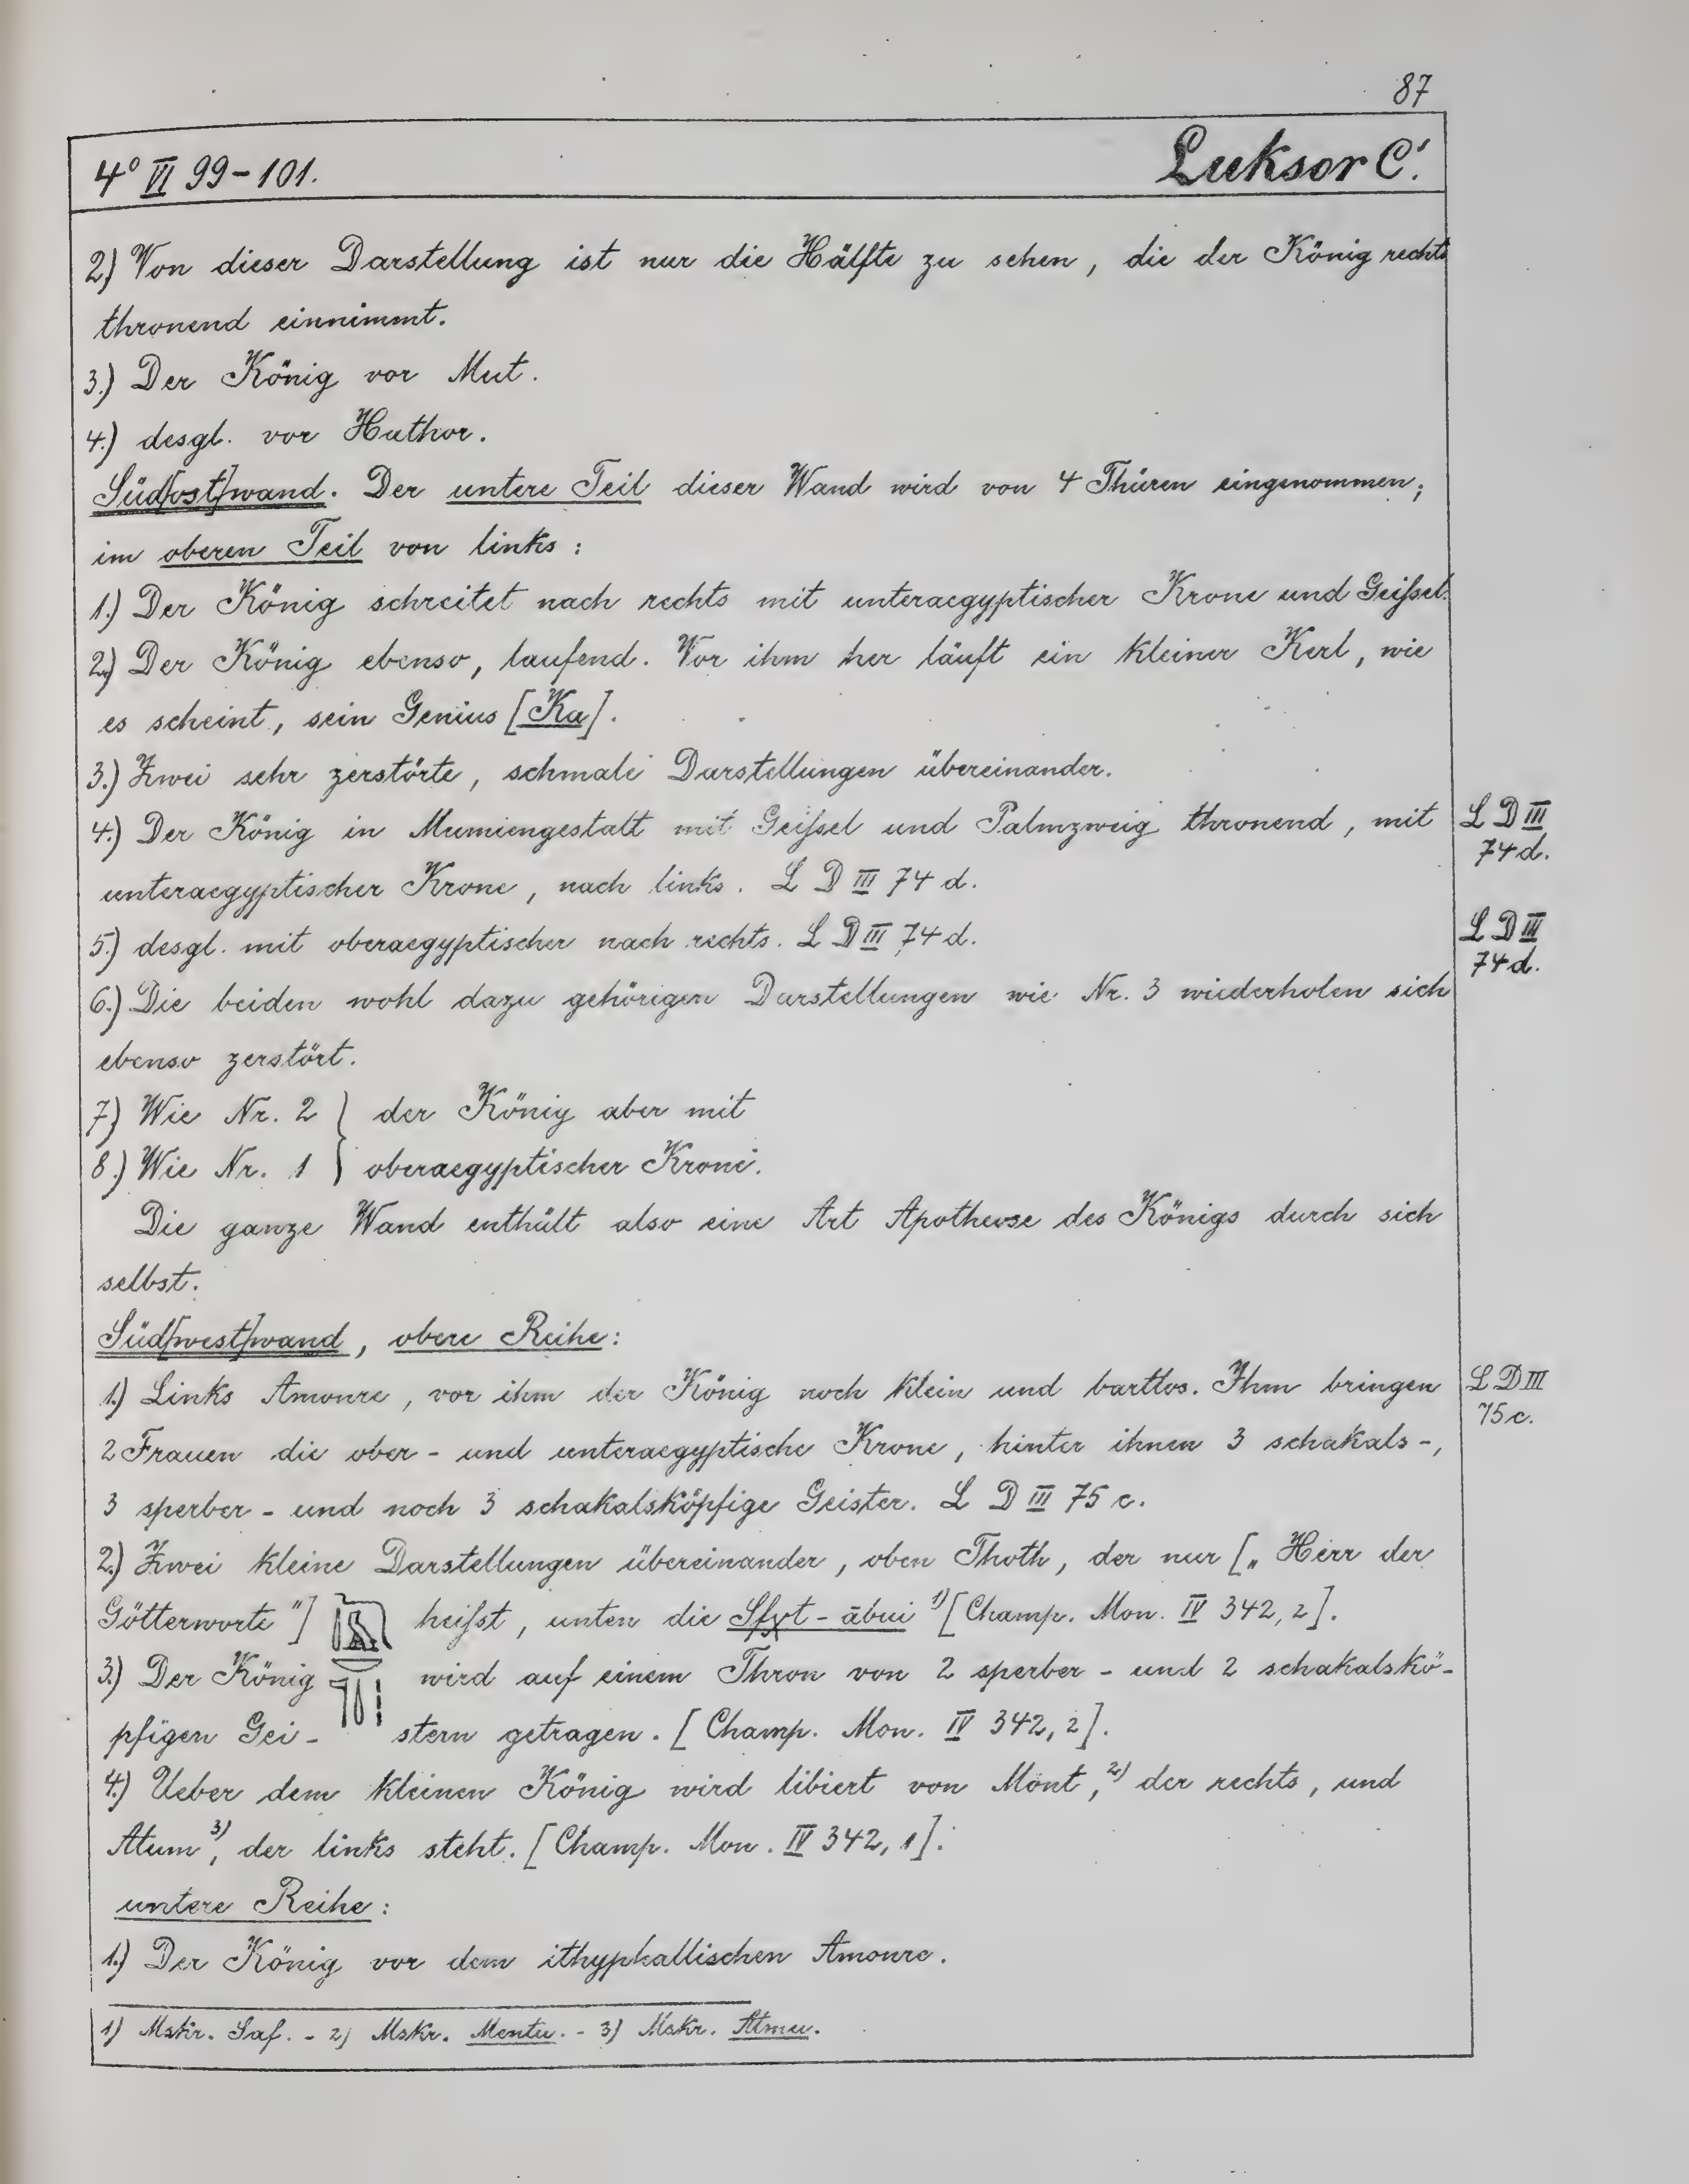 87
4° VI 99-101.
Luksor C'.
2) Von dieser Darstellung ist nur die Hälfte zu sehen, die der König rechts
thronend einnimmt.
3.) Der König vor Mut.
4.) desgl. vor Hathor.
Süd[ost]wand. Der untere Teil dieser Wand wird von 4 Thüren eingenommen;
im oberen Teil von links:
1.) Der König schreitet nach rechts mit unteraegyptischer Krone und Geißel.
2.) Der König ebenso, laufend. Vor ihm her läuft ein kleiner Kerl, wie
es scheint, sein Genius [Ka].
3.) Zwei sehr zerstörte, schmale Darstellungen übereinander.
4.) Der König in Mumiengestalt mit Geißel und Palmzweig thronend, mit
LD III
74 d.
unteraegyptischer Krone, nach links. L D III 74 d.
5.) desgl. mit oberaegyptischer nach rechts. L D III 74 d.
LD III
74 d.
6.) Die beiden wohl dazu gehörigen Darstellungen wie Nr. 3 wiederholen sich
ebenso zerstört.
7.) Wie Nr. 2 } der König aber mit
8.) Wie Nr. 1 } oberaegyptischer Krone.
Die ganze Wand enthält also eine Art Apotheose des Königs durch sich
selbst.
Süd[west]wand, obere Reihe:
1.) Links Amonre, vor ihm der König noch klein und bartlos. Ihm bringen
LD III
75 c.
2 Frauen die ober- und unteraegyptische Krone, hinter ihnen 3 schakals-,
3 sperber- und noch 3 schakalsköpfige Geister. L D III 75 c.
2.) Zwei kleine Darstellungen übereinander, oben Thoth, der nur [„Herr der
Götterworte"] heißt, unten die Sfχt-ābui 1) [Champ. Mon. IV 342, 2].
3.) Der König wird auf einem Thron von 2 sperber- und 2 schakalskö-
pfigen Gei- stern getragen. [Champ. Mon. IV 342, 2].
4.) Ueber dem kleinen König wird libiert von Mont, 2) der rechts, und
Atum 3), der links steht. [Champ. Mon. IV 342, 1].
untere Reihe:
1.) Der König vor dem ithyphallischen Amonre.
1) Mskr. Saf. - 2) Mskr. Mentu. - 3) Mskr. Atmu.